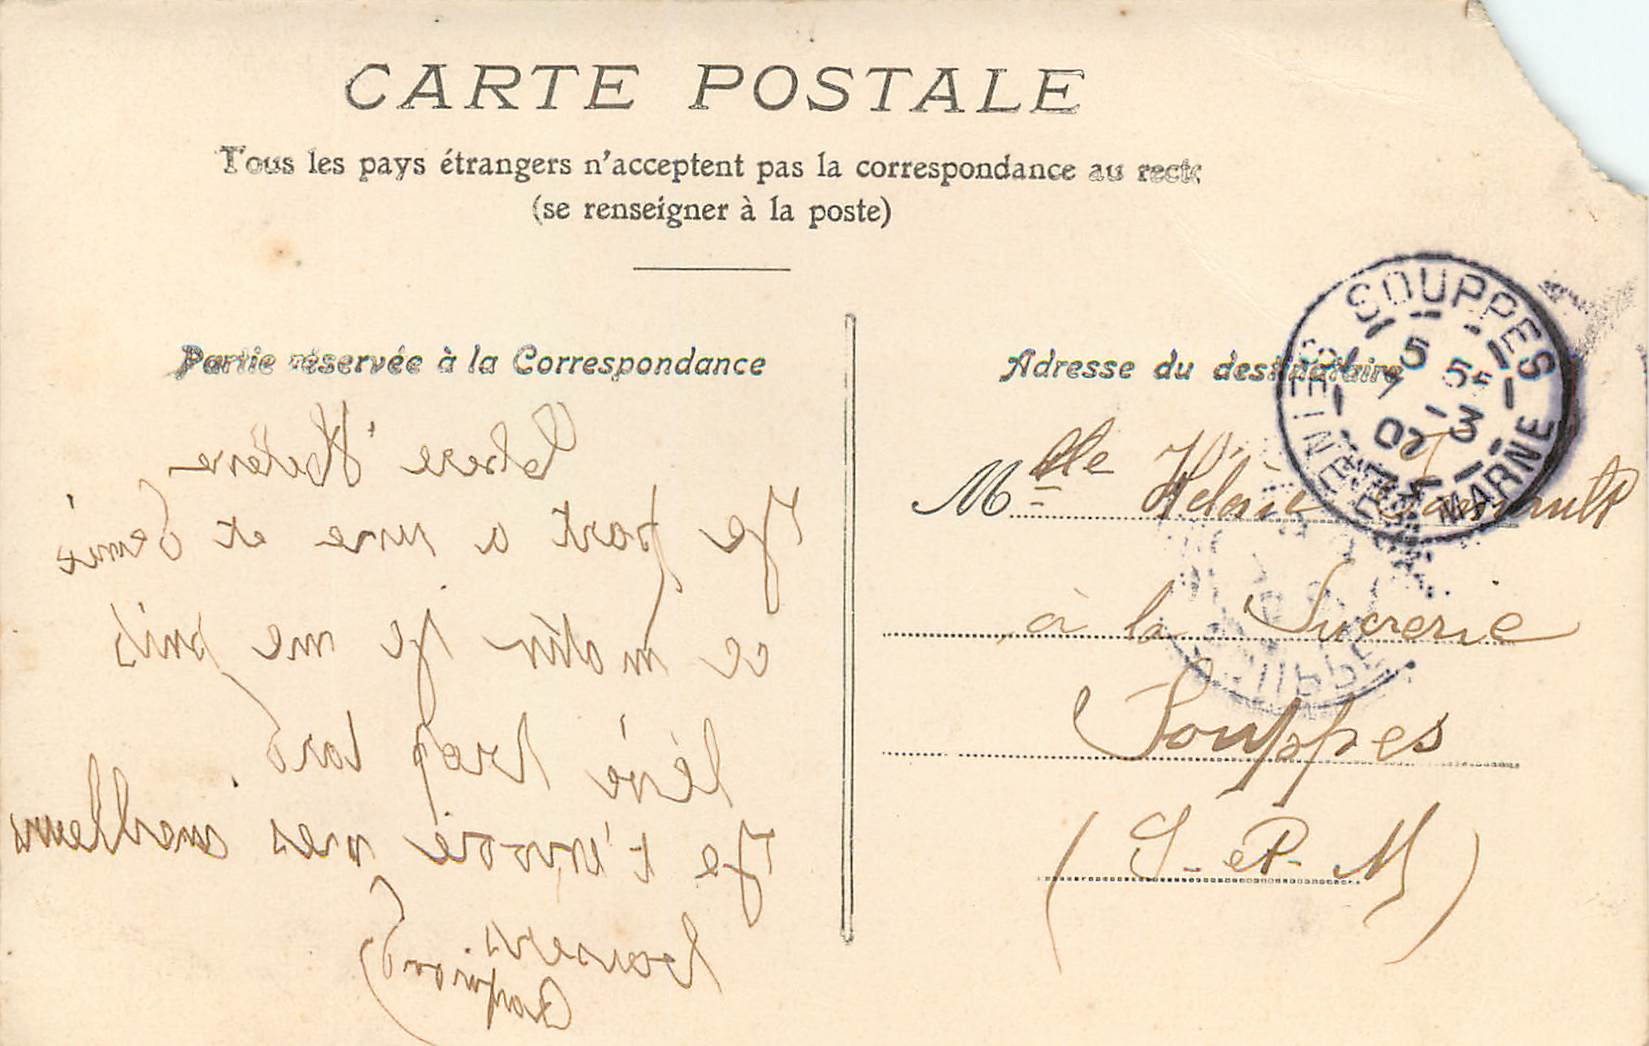 CARTE POSTALE
Tous les pays étrangers n'acceptent pas la correspondance au recto
(se renseigner à la poste)
Partie réservée à la Correspondance
Chere Helene
Je part a une et demie
ce matin je me suis
lévé trop tard
Je t'envoie mes meilleurs
baisers
Adresse du destinataire
SOUPPES
5 55
7 -3
07
SEINE ET MARNE
Mlle Hélène
à la Sucrerie
Souppes
(S- et- M)